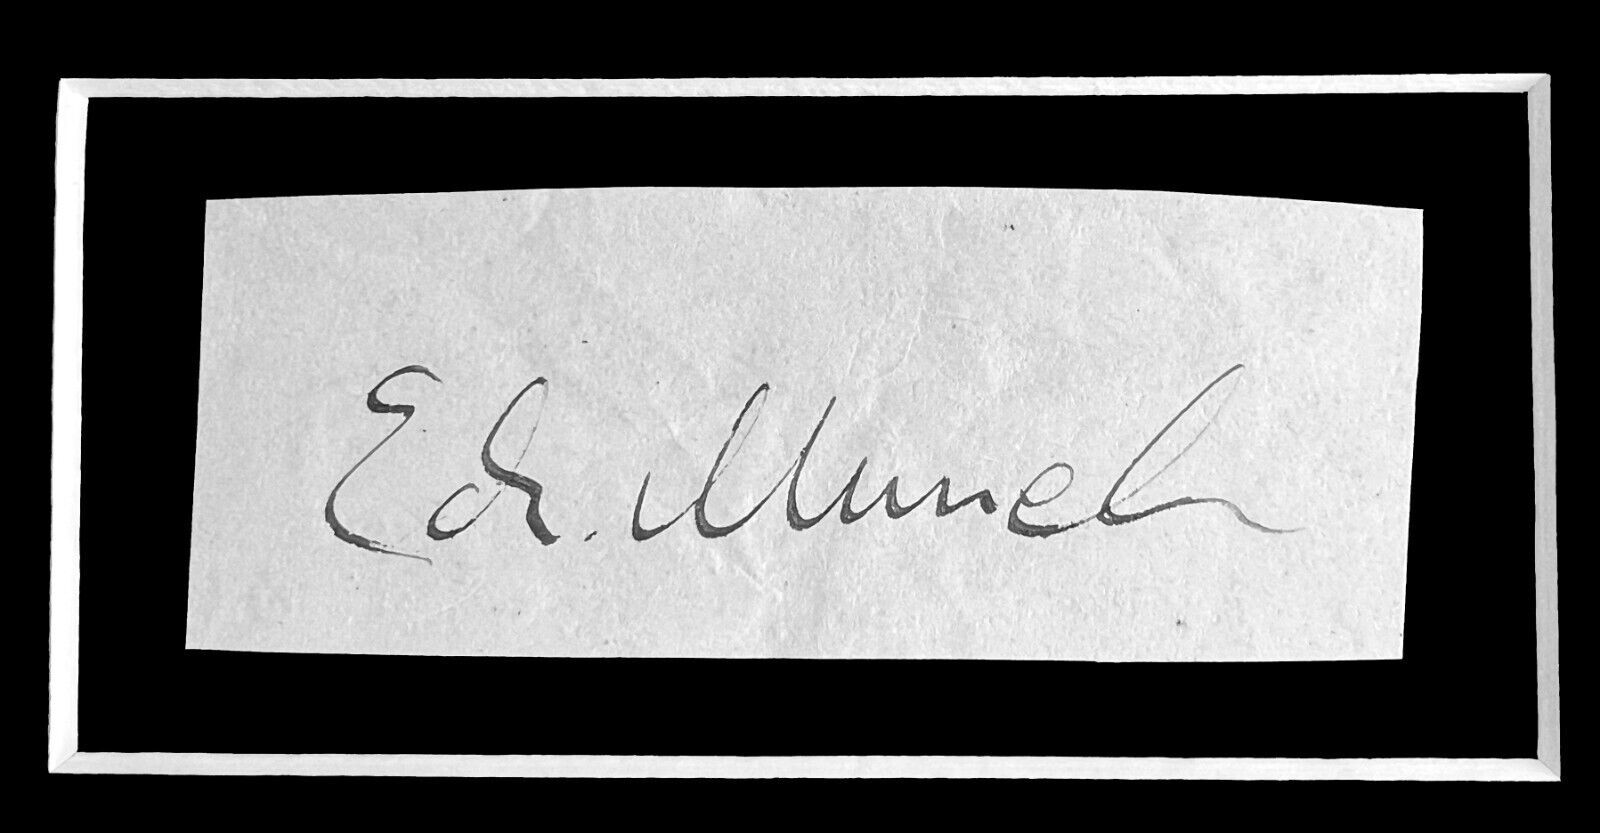 Ed. Munch